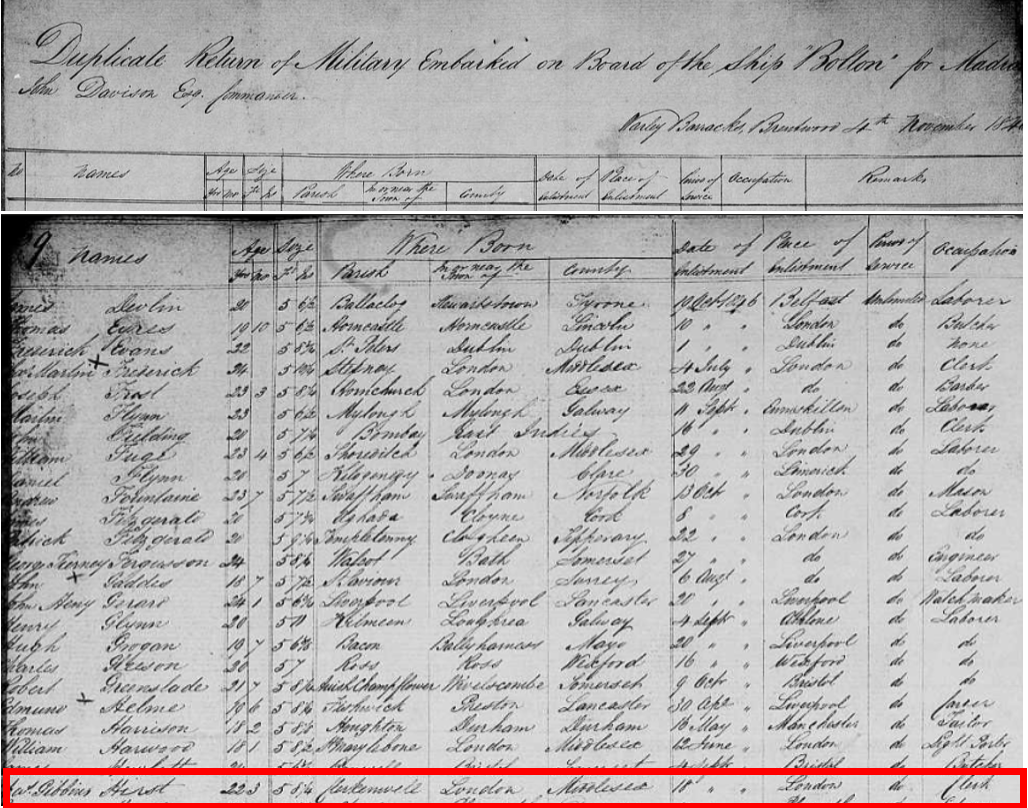 Duplicate Return of Military Embarked on Board of the Ship "Bolton" for Madras
John Davison Esq. Commander.
Warley Barracks, Brentwood 4th November 184
No Names Age Size Where Born Date of Place of Period of Occupation Remarks
Yrs Mo Ft Ins Parish In or near the Town of County Enlistment Enlistment Service
9 Names Age Size Where Born Date of Place of Period of Occupation
Yrs Mo Ft Ins Parish In or near the Town of County Enlistment Enlistment Service
Devlin 20 5 6½ Stewartstown Tyrone 19 Oct 1846 Belfast Unlimited Laborer
Thomas Eyres 19 10 5 6½ Horncastle Horncastle Lincoln 10 " " London do Butcher
Frederick Evans 22 5 St Peters Dublin Dublin 1 " " Dublin do None
Martin Frederick 24 5 Stepney London Middlesex 4 July " London do Clerk
Joseph Frost 23 3 5 Hornchurch London Essex 22 Augt " do do Barber
Martin Flynn 23 5 Mylough Mylough Galway 11 Sept " Enniskillen do Laborer
Fielding 20 5 Bombay East Indies 16 " " Dublin do Clerk
William Fuge 23 4 5 Shoreditch London Middlesex 29 " " London do Laborer
Daniel Flynn 20 5 7 Clare 30 " " Limerick do do
Andrew Fountaine 23 7 5 7½ Swaffham Swaffham Norfolk 13 Oct " London do Mason
Fitzgerald 20 5 7 Aghada Cloyne Cork 8 " " Cork do Laborer
Patrick Fitzgerald 20 5 Templetenny Clogheen Tipperary 22 " " London do do
George Tierney Fergusson 24 5 8 Walcot Bath Somerset 27 " " do do Engineer
John Gaddes 18 7 5 7½ St Saviour London Surrey 6 Augt " do do Laborer
John Henry Gerard 24 1 5 6 Liverpool Liverpool Lancaster 20 " " Liverpool do Watchmaker
Henry Glynn 20 5 Kilmeen Loughrea Galway 4 Sept " Athlone do Laborer
Hugh Grogan 19 7 5 6 Bacon Mayo 20 " " Liverpool do do
Charles Gleeson 20 5 7 Ross Ross Wexford 16 " " Wexford do do
Robert Greenslade 21 7 5 8 Huish Champflower Wivelscombe Somerset 9 Oct " Bristol do do
Edmund Helme 19 6 5 8 Preston Lancaster 30 Apl " Liverpool do
Thomas Harrison 18 2 5 8 Houghton Durham Durham 16 May " Manchester do Tailor
William Harwood 18 1 5 8½ St Marylebone London Middlesex 12 June " London do Light Porter
4 Sept " Bristol do Butcher
Jas. Gibbins Hirst 22 3 5 8¼ Clerkenwell London Middlesex 18 " London do Clerk